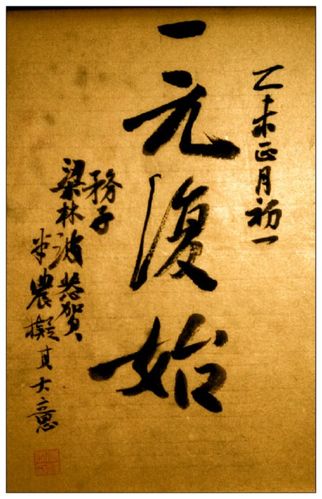 乙未正月初一
一元復始
務子
梁林波恭賀
農擬其大意